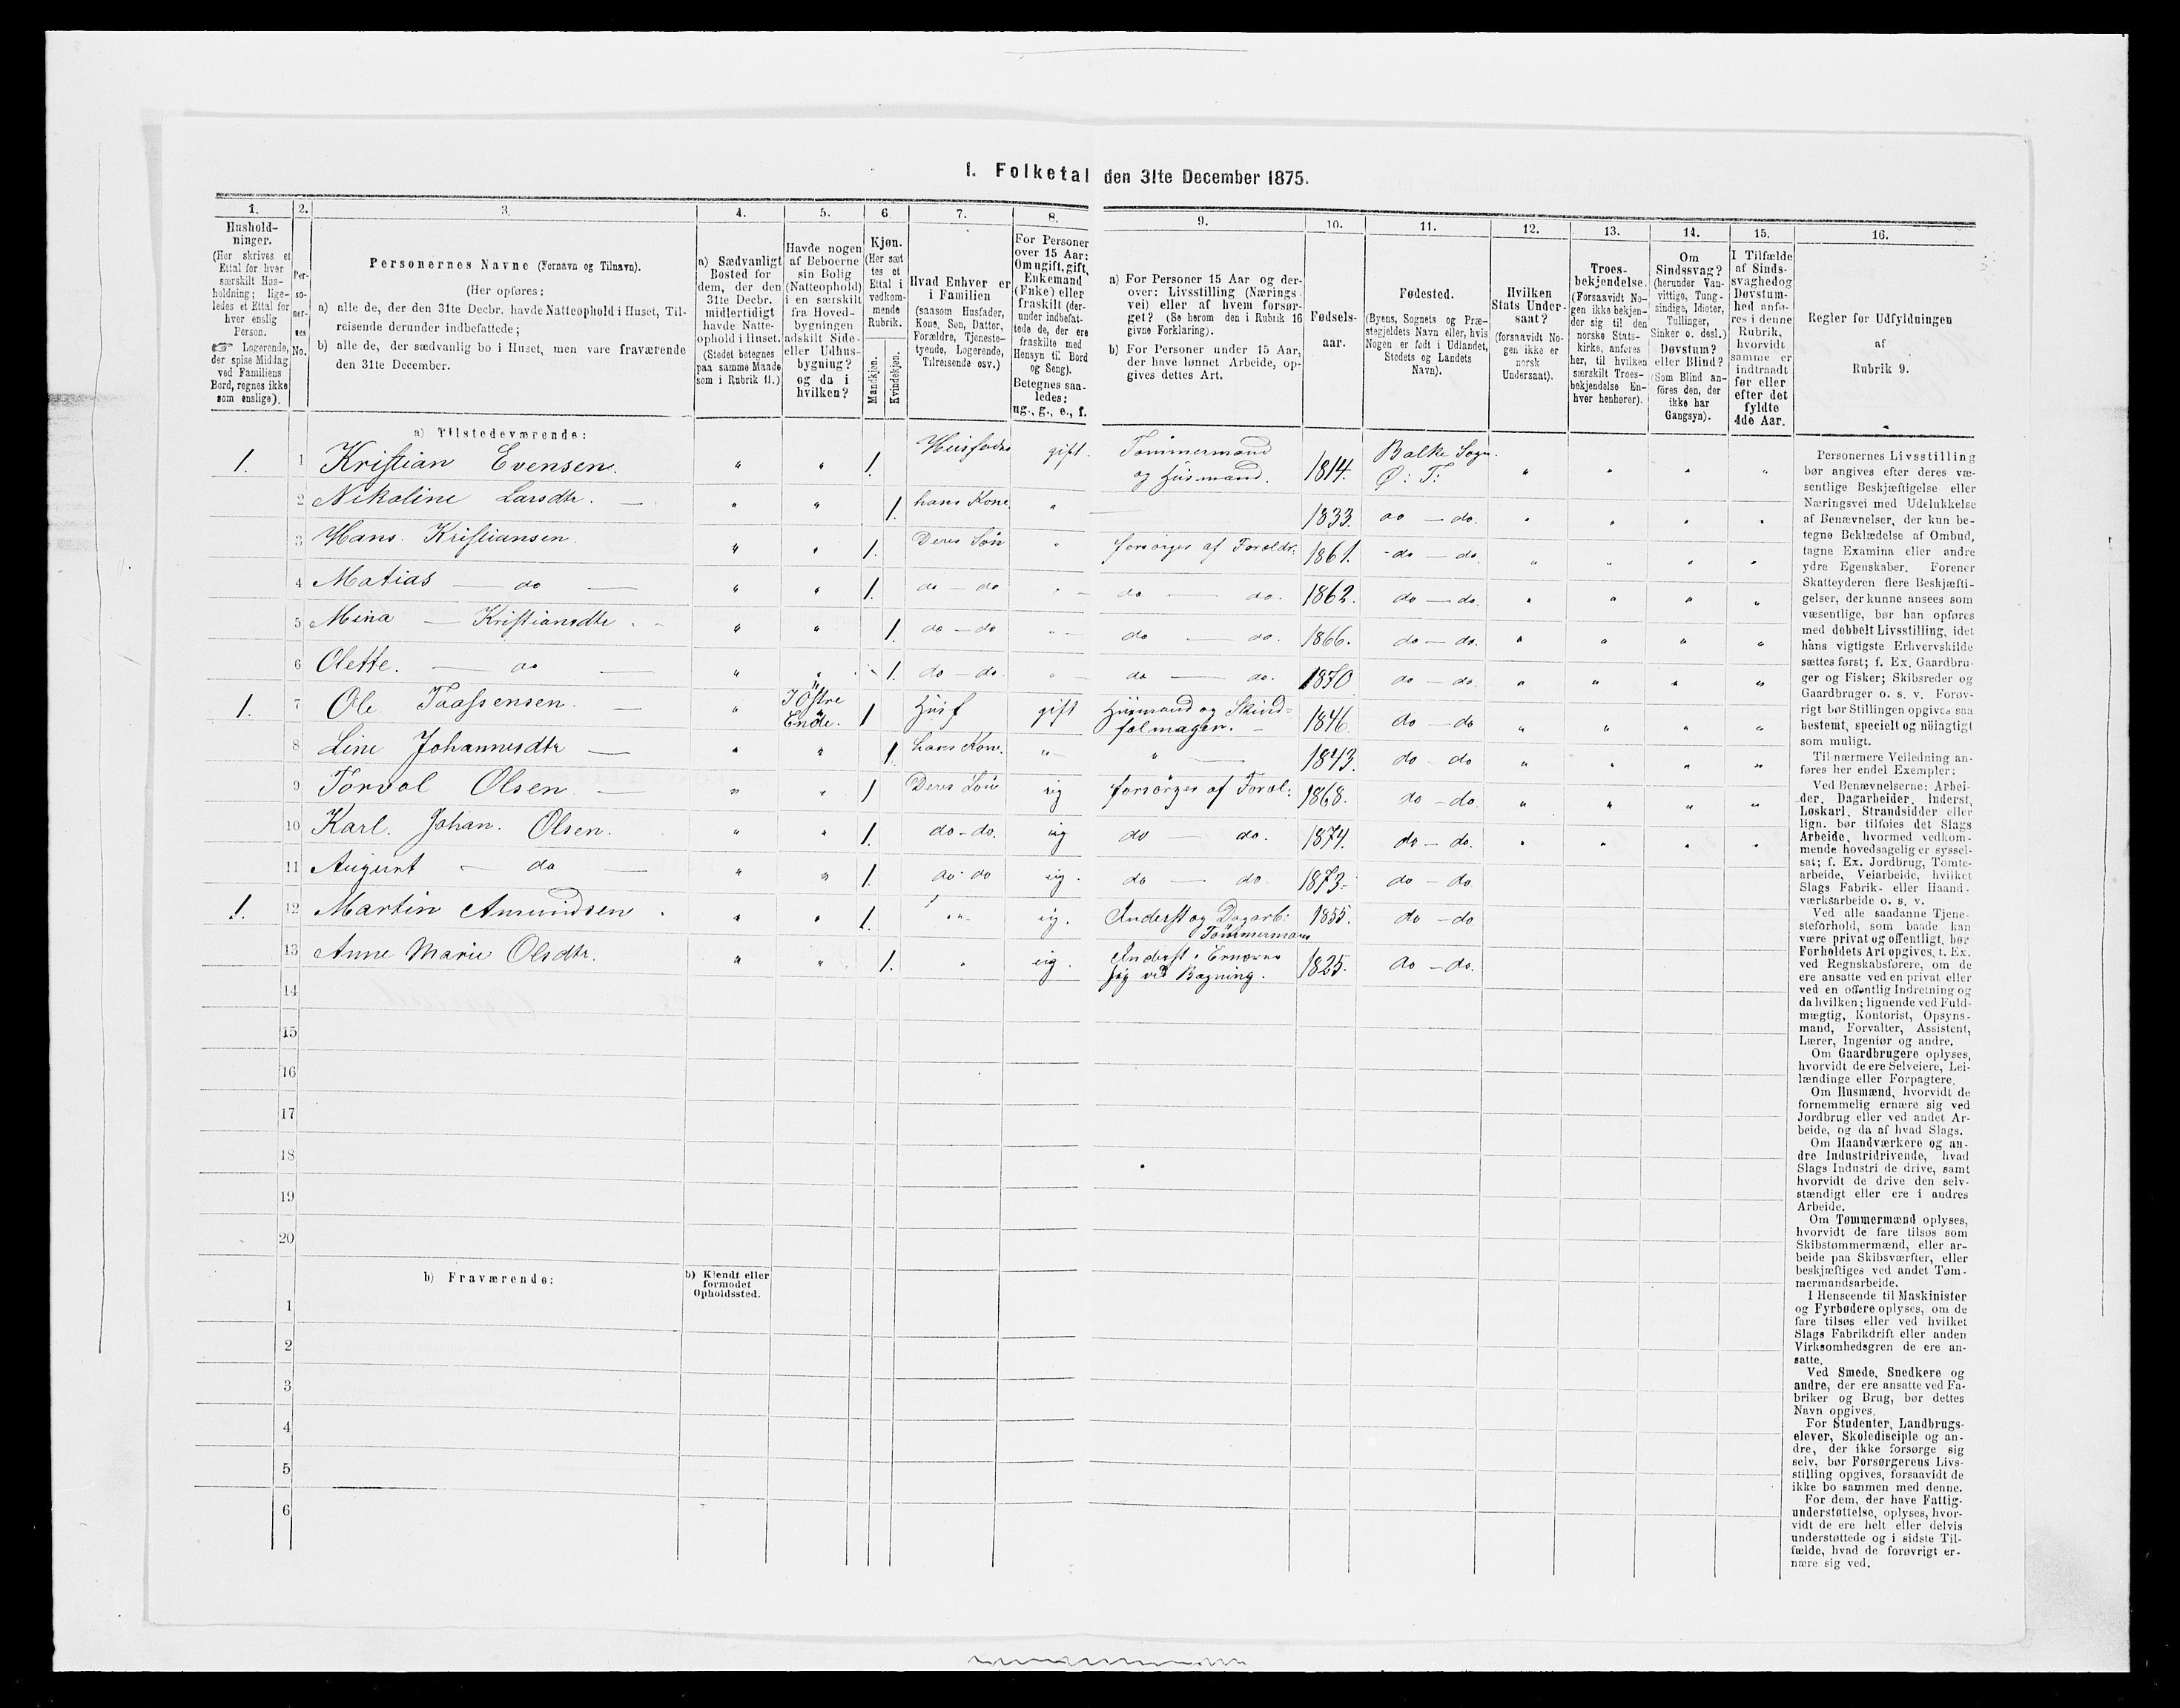 I. Folketal den 31te December 1875.
1. 2. 3. 4. 5. 6. 7. 8. 9. 10. 11. 12. 13. 14. 15. 16.
Hushold-
ninger.
(Her skrives et
Ettal for hver
særskilt Hus-
holdning; lige-
ledes et Ettal for
hver enslig
Person.
☞ Logerende,
der spise Middag
ved Familiens
Bord, regnes ikke
som enslige).
Per-
so-
ner-
nes
No.
Personernes Navne (Fornavn og Tilnavn).
(Her opføres:
a) alle de, der den 31te Decbr. havde Natteophold i Huset, Til-
reisende derunder indbefattede;
b) alle de, der sædvanlig bo i Huset, men vare fraværende
den 31te December.
a) Sædvanligt
Bosted for
dem, der den
31te Decbr.
midlertidigt
havde Natte-
ophold i Huset.
(Stedet betegnes
paa samme Maade
som i Rubrik 11.)
Havde nogen
af Beboerne
sin Bolig
(Natteophold)
i en særskilt
fra Hoved-
bygningen
adskilt Side-
eller Udhus-
bygning?
og da i
hvilken?
Kjøn.
(Her sæt
tes et
Ettal i
vedkom-
mende
Rubrik.
Mandkjøn.
Kvindekjøn.
Hvad Enhver er
i Familien
(saasom Husfader,
Kone, Søn, Datter,
Forældre, Tjeneste-
tyende, Logerende,
Tilreisende osv.)
For Personer
over 15 Aar:
Om ugift, gift,
Enkemand
(Enke) eller
fraskilt (der-
under indbefat-
tede de, der ere
fraskilte med
Hensyn til Bord
og Seng).
Betegnes saa-
ledes:
ug., g., e., f.
a) For Personer 15 Aar og der-
over: Livsstilling (Nærings-
vei) eller af hvem forsør-
get? (Se herom den i Rubrik 16
givne Forklaring).
b) For Personer under 15 Aar,
der have lønnet Arbeide, op-
gives dettes Art.
Fødsels-
aar.
Fødested.
(Byens, Sognets og Præ-
stegjeldets Navn eller, hvis
Nogen er født i Udlandet,
Stedets og Landets
Navn).
Hvilken
Stats Under-
saat?
(forsaavidt No-
gen ikke er
norsk
Undersaat).
Troes-
bekjendelse.
(Forsaavidt No-
gen ikke bekjen-
der sig til den
norske Stats-
kirke, anføres
her, til hvilken
særskilt Troes-
bekjendelse En-
hver henhører).
Om
Sindssvag?
(herunder Van-
vittige, Tung-
sindige, Idioter,
Tullinger,
Sinker o. desl.)
Døvstum?
eller Blind?
(Som Blind an-
føres den, der
ikke har
Gangsyn).
I Tilfælde
af Sinds-
svaghed og
Døvstum-
hed anfø-
res i denne
Rubrik,
hvorvidt
samme er
indtraadt
før eller
efter det
fyldte
4de Aar.
Regler for Udfyldningen
af
Rubrik 9.
a) Tilstedeværende:
1. 1 Kristian Evensen. " " 1. Husfader gift. Tømmermand og Husmand. 1814. Balke Sogn. Ø: T: " " " "
2 Nikoline Larsdtr. — " " 1. hans Kone. " — 1833. do — do. " " " "
3 Hans Kristiansen. " " 1. Deres Søn " forsørges af Foreldr: 1861. do — do. " " " "
4 Matias — do — " " 1. do — do " do — do. 1862. do — do. " " " "
5 Mina — Kristiansdtr. " " 1. do — do " do — do. 1866. do — do. " " " "
6 Olette. — do — " " 1. do — do. " do — do. 1870 do — do. " " " "
1. 7 Ole Taassensen. — " I Østre Ende. 1 Husf gift Husmand og Skind- 1846. do — do " " " "
8 Line Johannesdtr — " " 1 hans Kone. " " — 1843. do — do " " " "
9 Torval Olsen — " " 1 Deres Søn ug forsørges af Foræl: 1868. do — do. " " " "
10 Karl. Johan. Olsen. " " 1. do — do. ug do — do. 1874. do — do. " " " "
11 August — do — " " 1. do - do ug. do — do. 1873. do — do
1. 12 Martin Amundsen. " " 1. " ug. Inderst og Dagarb: Tömmermand 1855. do — do
13 Anne Marie Olsdtr. " " 1. " ug. Inderst. Ernærer sig ved Bagning. 1825. do — do.
14
15
16
17
18
19
20
b) Fraværende:
b) Kjendt eller
formodet
Opholdssted.
1
2
3
4
5
6
Personernes Livsstilling
bør angives efter deres væ-
sentlige Beskjæftigelse eller
Næringsvei med Udelukkelse
af Benævnelser, der kun be-
tegne Beklædelse af Ombud,
tagne Examina eller andre
ydre Egenskaber. Forener
Skatteyderen flere Beskjæfti-
gelser, der kunne ansees som
væsentlige, bør han opføres
med dobbelt Livsstilling, idet
hans vigtigste Erhvervskilde
sættes først; f. Ex. Gaardbru-
ger og Fisker; Skibsreder og
Gaardbruger o. s. v. Forøv-
rigt bør Stillingen opgives saa
bestemt, specielt og nöiagtigt
som muligt.
Til nærmere Veiledning an-
føres her endel Exempler:
Ved Benævnelserne: Arbei-
der, Dagarbeider, Inderst,
Løskarl, Strandsidder eller
lign. bør tilføies det Slags
Arbeide, hvormed vedkom-
mende hovedsagelig er syssel-
sat; f. Ex. Jordbrug, Tomte-
arbeide, Veiarbeide, hvilket
Slags Fabrik- eller Haand-
værksarbeide o. s. v.
Ved alle saadanne Tjene-
steforhold, som baade kan
være privat og offentligt, bør
Forholdets Art opgives, t. Ex.
ved Regnskabsførere, om de
ere ansatte ved en privat eller
ved en offentlig Indretning og
da hvilken; lignende ved Fuld-
mægtig, Kontorist, Opsyns-
mand, Forvalter, Assistent,
Lærer, Ingeniør og andre.
Om Gaardbrugere oplyses,
hvorvidt de ere Selveiere, Lei-
lændinge eller Forpagtere.
Om Husmænd, hvorvidt de
fornemmelig ernære sig ved
Jordbrug eller ved andet Ar-
beide, og da af hvad Slags.
Om Haandværkere og an-
dre Industridrivende, hvad
Slags Industri de drive, samt
hvorvidt de drive den selv-
stændigt eller ere i andres
Arbeide.
Om Tømmermænd oplyses,
hvorvidt de fare tilsøs som
Skibstømmermænd, eller ar-
beide paa Skibsværfter, eller
beskjæftiges ved andet Tøm-
mermandsarbeide.
I Henseende til Maskinister
og Fyrbødere oplyses, om de
fare tilsøs eller ved hvilket
Slags Fabrikdrift eller anden
Virksomhedsgren de ere an-
satte.
Ved Smede, Snedkere og
andre, der ere ansatte ved Fa-
briker og Brug, bør dettes
Navn opgives.
For Studenter, Landbrugs-
elever, Skoledisciple og an-
dre, der ikke forsørge sig
selv, bør Forsørgerens Livs-
stilling opgives, forsaavidt de
ikke bo sammen med denne.
For dem, der have Fattig-
understøttelse, oplyses, hvor-
vidt de ere helt eller delvis
understøttede og i sidste Til-
fælde, hvad de forøvrigt er-
nære sig ved.